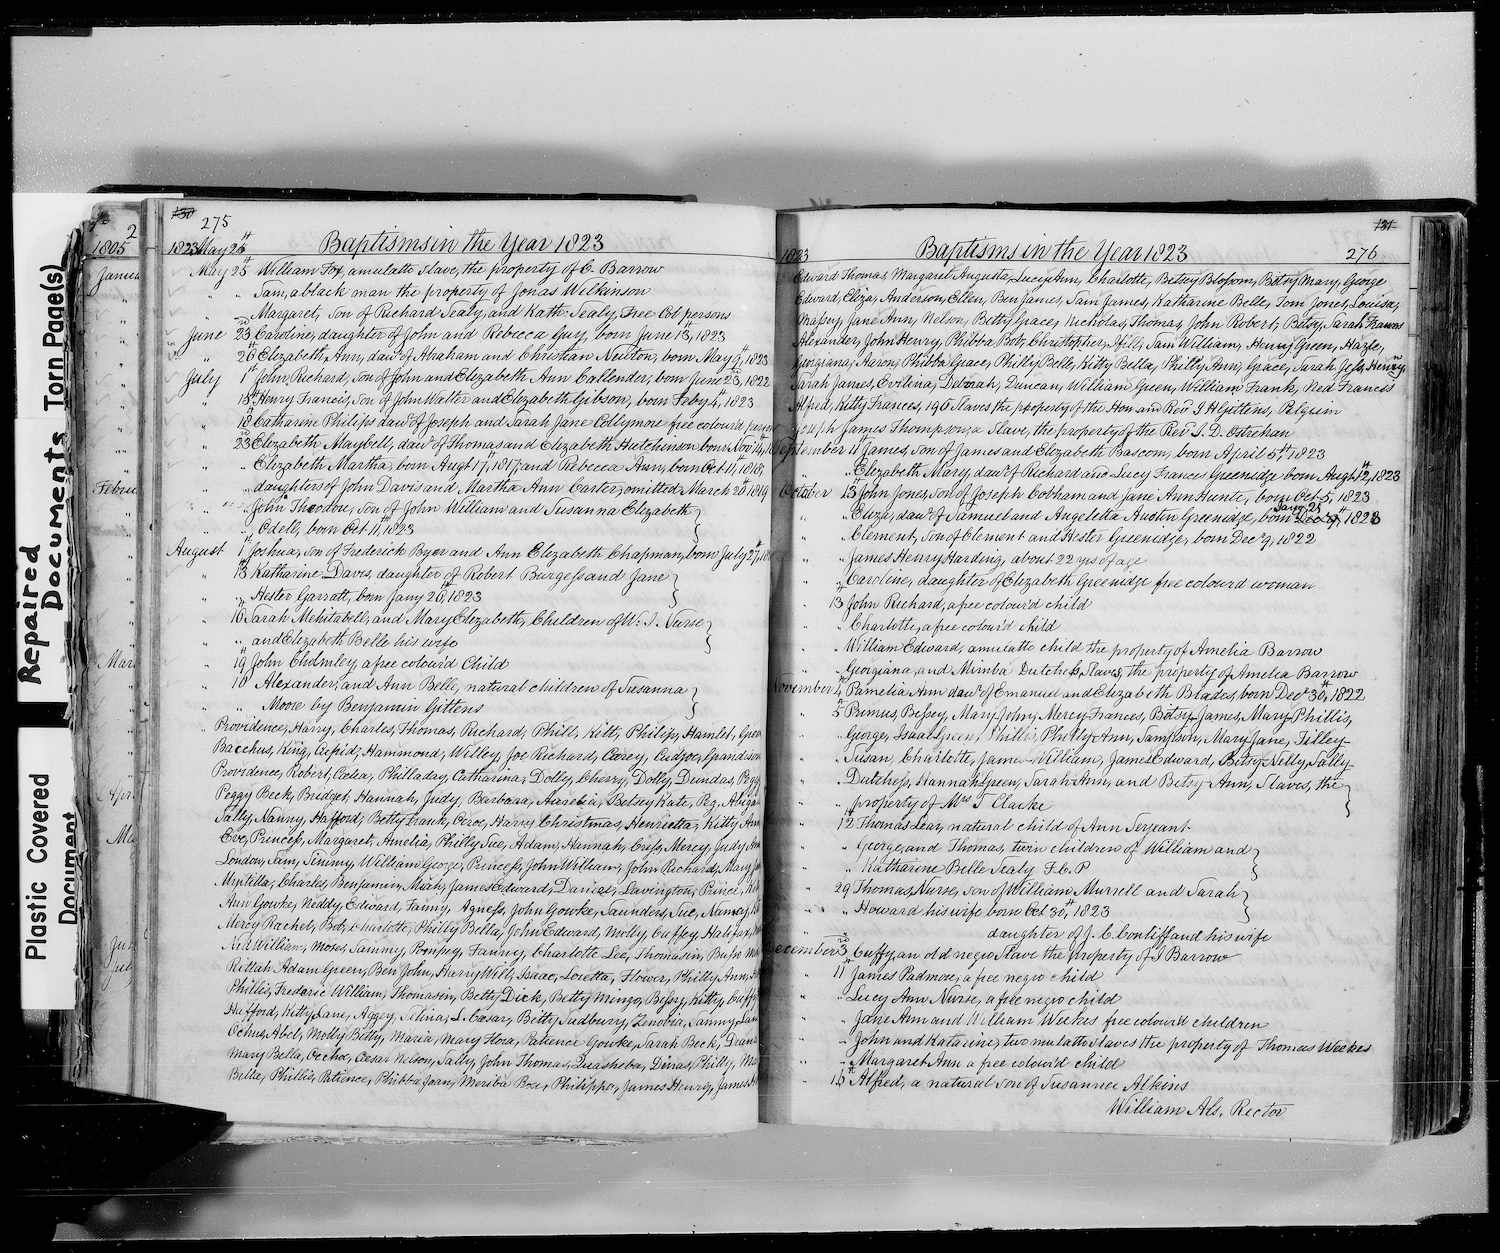 Repaired Documents
Torn Page(s)
Plastic Covered Document
2
1805
Febru
Mar
Apr
130
275
1823 May 24th
Baptisms in the Year 1823
May 25th William Fox, a mulatto slave, the property of C. Barrow
" Sam, a black man the property of Jonas Wilkinson
" Margaret, Son of Richard Sealy, and Kath: Sealy, Free Col persons
June 23rd Caroline, daughter of John and Rebecca Guy, born June 13th, 1823
" 26 Elizabeth Ann, daur of Abraham and Christian Newton, born May 9th, 1823
July 1st John Richard, Son of John and Elizabeth Ann Callender, born June 23, 1822
" 18th Henry Francis, Son of John Walter and Elizabeth Gibson, born Feby 4th, 1823
" 18th Catharine Philips daur of Joseph and Sarah Jane Collymore free coloured
" 23rd Elizabeth Maybell, daur of Thomas and Elizabeth Hutchinson born Novr 14th
" Elizabeth Martha, born Augt 17th, 1817, and Rebecca Ann, born Oct 11, 1818,
" daughters of John Davis and Martha Ann Carter, omitted March 20th 1819
" John Theodore, Son of John Williams and Susanna Elizabeth
" Odell, born Oct 11th 1823
August 1st Joshua, Son of Frederick Byer and Ann Elizabeth Chapman, born July 27th
" 13 Katharine Davis, daughter of Robert Burgess and Jane
" Hester Garratt, born Jany 20, 1823
" 16 Sarah Mehitabell, and Mary Elizabeth, Children of W. J. Nurse
" and Elizabeth Belle his wife
" 19th John Cholmley a free colour'd Child
" 10 Alexander, and Ann Belle, natural children of Susanna
" Moore by Benjamin Gittens
" Providence, Harry, Charles, Thomas, Richard, Phill, Kitt, Philip, Hamlet,
Bacchus, King, Cupid, Hammond, Willey, Joe Richard, Casey, Cudjoe, Grandison
Providence, Robert, Philladay, Catharina, Dolly, Cherry, Dolly, Dundas,
Peggy Beck, Bridget, Hannah, Judy, Barbara, Betsey Kate, Peg,
Sally, Nanny, Hafford, Betty Frank, Harry Christmas, Henrietta, Kitty Ann
Eve, Princess, Margaret, Amelia, Philly Sue, Adam, Hannah, Mercy, Judy
London, Sam, Jimmy, William George, Princess, John William, John Richard, Mary
Mirtilla, Charles, Benjamin, James Edward, Daniel, Lavington, Prince,
Ann Gowke, Neddy, Edward, Fanny, Agness, John Gowke, Saunders, Sue, Nancy,
Mercy Rachel, Bob, Charlotte, Philly Bella, John Edward, Molly, Cuffey,
Ned William, Moses, Sammy, Pompey, Fanny, Charlotte Lee, Thomasin,
Rittah, Adam Green, Ben John, Harry Will, Isaac, Loretta, Flower, Philly Ann,
Phillis, Frederic William, Thomasin, Betty Dick, Betty Mingo, Bessy, Kitty,
Hafford, Kitty Jane, Aggey, Selina, Cæsar, Betty Sudbury, Zenobia, Sammy,
Abel, Molly Betty, Maria, Mary Flora, Patience Gowke, Sarah Beck,
Mary Bella, Cæsar Nelson, Sally, John Thomas, Quasheba, Dinas, Philly,
Belle, Phillis, Patience, Phibba Joan, Mensba Box, Philippo, James Henry, James
131
1823
Baptisms in the Year 1823
276
Edward Thomas, Margaret Augusta, Lucy Ann, Charlotte, Betsey Blossom, Betsy Mary, George
Edward, Eliza, Anderson, Ellen, Ben James, Sam James, Katharine Belle, Tom Jones, Louisa,
Massey, Jane Ann, Nelson, Betty Grace, Nicholas, Thomas, John Robert, Betsy, Sarah Frances
Alexander, John Henry, Phibba Bob, Christopher, Sam William, Henry Green, Hazle,
Georgiana, Aaron, Phibba Grace, Philly Belle, Kitty Bella, Philly Ann, Grace, Sarah Jess, Henry
Sarah James, Evilina, Deborah, Duncan, William Green, William Frank, Ned Francis
Alfred, Kitty Frances, 196 Slaves the property of the Hon and Revd J H Gittens, Pilgrim
Joseph James Thompson, a Slave, the property of the Revd T. D. Ostrehan
September 11th James, Son of James and Elizabeth Bascom, born April 5th 1823
" Elizabeth Mary, daur of Richard and Lucy Frances Greenidge born Augt 12th, 1823
October 13th John Jones, Son of Joseph Cobham and Jane Ann Hunte, born Oct 5, 1823
" Eliza, daur of Samuel and Angeletta Austin Greenidge, born Jany 21 1823
" Clement, Son of Clement and Hester Greenidge, born Decr 9, 1822
" James Henry Harding, about 22 yrs of age
" Caroline, daughter of Elizabeth Greenidge free colour'd woman
" 13th John Richard, a free colour'd child
" Charlotte, a free colour'd child
" William Edward, a mulatto child the property of Amelia Barrow
" Georgiana, and Mimba Dutchess, Slaves, the property of Amelia Barrow
November 4th Pamelia Ann daur of Emanuel and Elizabeth Blades, born Decr 30th, 1822
" 5th Primus, Bessey, Mary John, Mercy Frances, Betsy James, Mary Phillis,
" George, Isaac Green, Phillis, Philly Ann, Sampson, Mary Jane, Tilley
" Susan, Charlotte, James William, James Edward, Betsy Nelly, Sally
" Dutchess, Hannah Green, Sarah Ann, and Betsy Ann, Slaves, the
" property of Mrs T Clarke
" 12th Thomas Lear, natural child of Ann Serjeant
" George, and Thomas, twin children of William and
" Katharine Belle Sealy F. C. P
" 29 Thomas Nurse, Son of William Murrell and Sarah
" Howard his wife born Oct 30th, 1823
" daughter of J. C. Contiff and his wife
December 3rd Cuffy, an old negro Slave the property of J Barrow
" 11th James Padmore, a free negro child
" Lucy Ann Nurse, a free negro child
" Jane Ann and William Weekes free colour'd children
" John and Katarine, two mulatto Slaves the property of Thomas Weekes
" Margaret Ann a free colour'd child
" 15th Alfred, a natural Son of Susannee Alkins
William Als, Rector